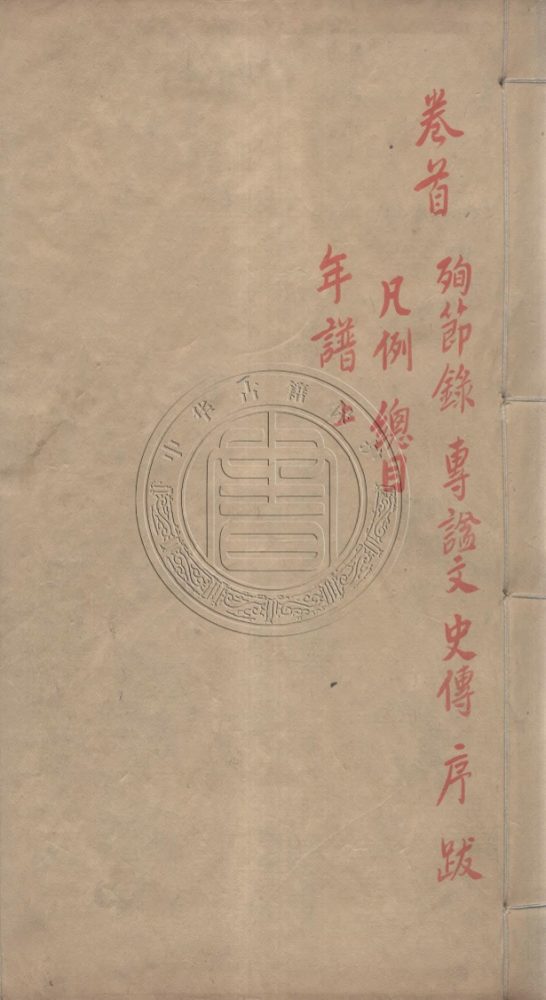 卷首
殉節錄 專謚文 史傳 序 跋
凡例 總目
年譜上
中华古籍